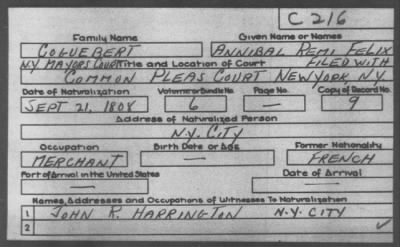 C 216
Family Name Given Name or Names
COGUEBERT ANNIBAL REMI FELIX
N.Y. MAYORS COURT Title and Location of Court FILED WITH
COMMON PLEAS COURT NEW YORK, N.Y.
Date of Naturalization Volume or Bundle No. Page No. Copy of Record No.
SEPT 21, 1808 6 — 9
Address of Naturalized Person
N.Y. CITY
Occupation Birth Date or Age Former Nationality
MERCHANT — FRENCH
Port of Arrival in the United States Date of Arrival
— —
Names, Addresses and Occupations of Witnesses To Naturalization
1 JOHN R. HARRINGTON N.Y. CITY
2 ✓